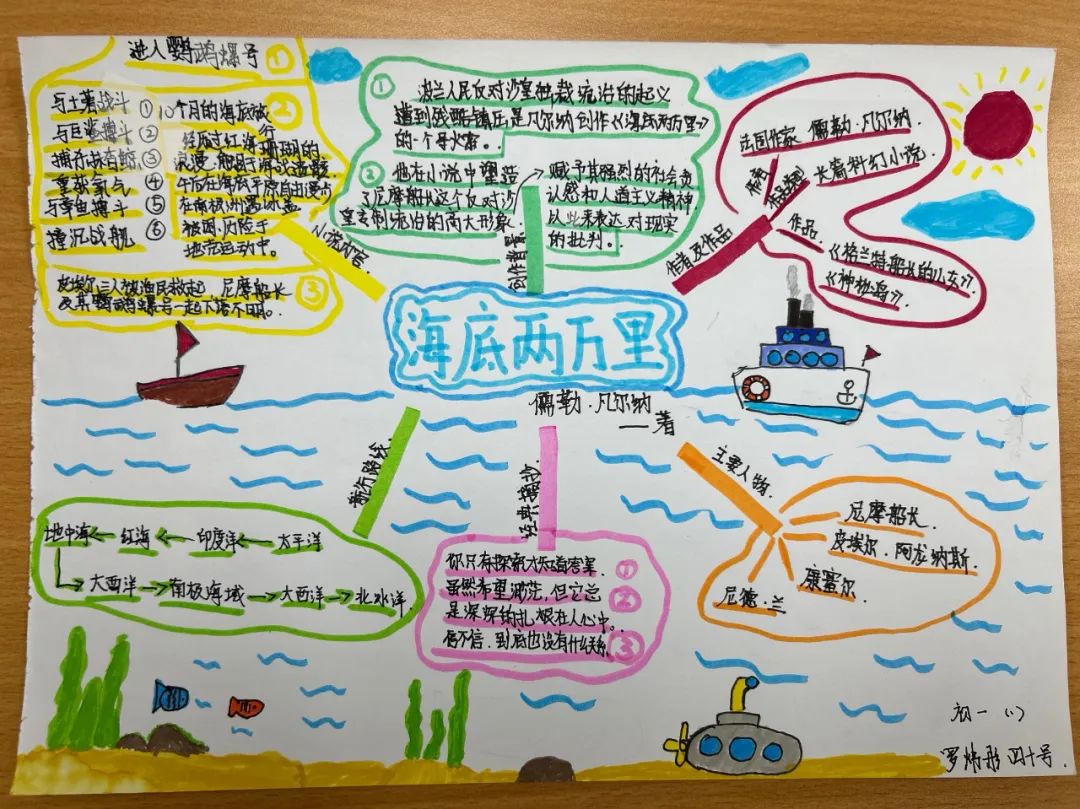 进入鹦鹉螺号 ①
与土著战斗 ①
与巨鲨搏斗 ②
捕行抹香鲸 ③
重缺氧气 ④
与章鱼搏斗 ⑤
撞沉战舰 ⑥
10个月的海底旅行 ②
经历过红海珊瑚的
浪漫,
在南极
被困,
地壳运动中。
皮埃尔三人被渔民救起 尼摩船长
及其鹦鹉螺号一起下落不明。 ③
小说内容
① 波兰人民反对沙皇独裁统治的起义
遭到俄略镇压是凡尔纳创作《海底两万里》
的一个导火索。
② 他在小说中塑造
了尼摩船长这个反对沙
皇专制统治的高大形象
赋予其强烈的社会责
认感和人道主义精神
以此来表达对现实
的批判。
创作背景
法国作家 儒勒·凡尔纳.
长篇科幻小说
作者及作品
作品
《格兰特船长的儿女》
《神秘岛》
海底两万里
儒勒·凡尔纳
一著
航行路线
地中海 ← 红海 ← 印度洋 ← 太平洋
大西洋 → 南极海域 → 大西洋 → 北冰洋
经典摘抄
你只有探索才知道答案. ①
虽然希望渺茫,但它总 ②
是深深的扎根在人心中。
信不信,到底也没有什么关系 ③
主要人物
尼摩船长
皮埃尔·阿龙纳斯
康塞尔
尼德·兰
初一 (1)
罗炜彤 四十号.